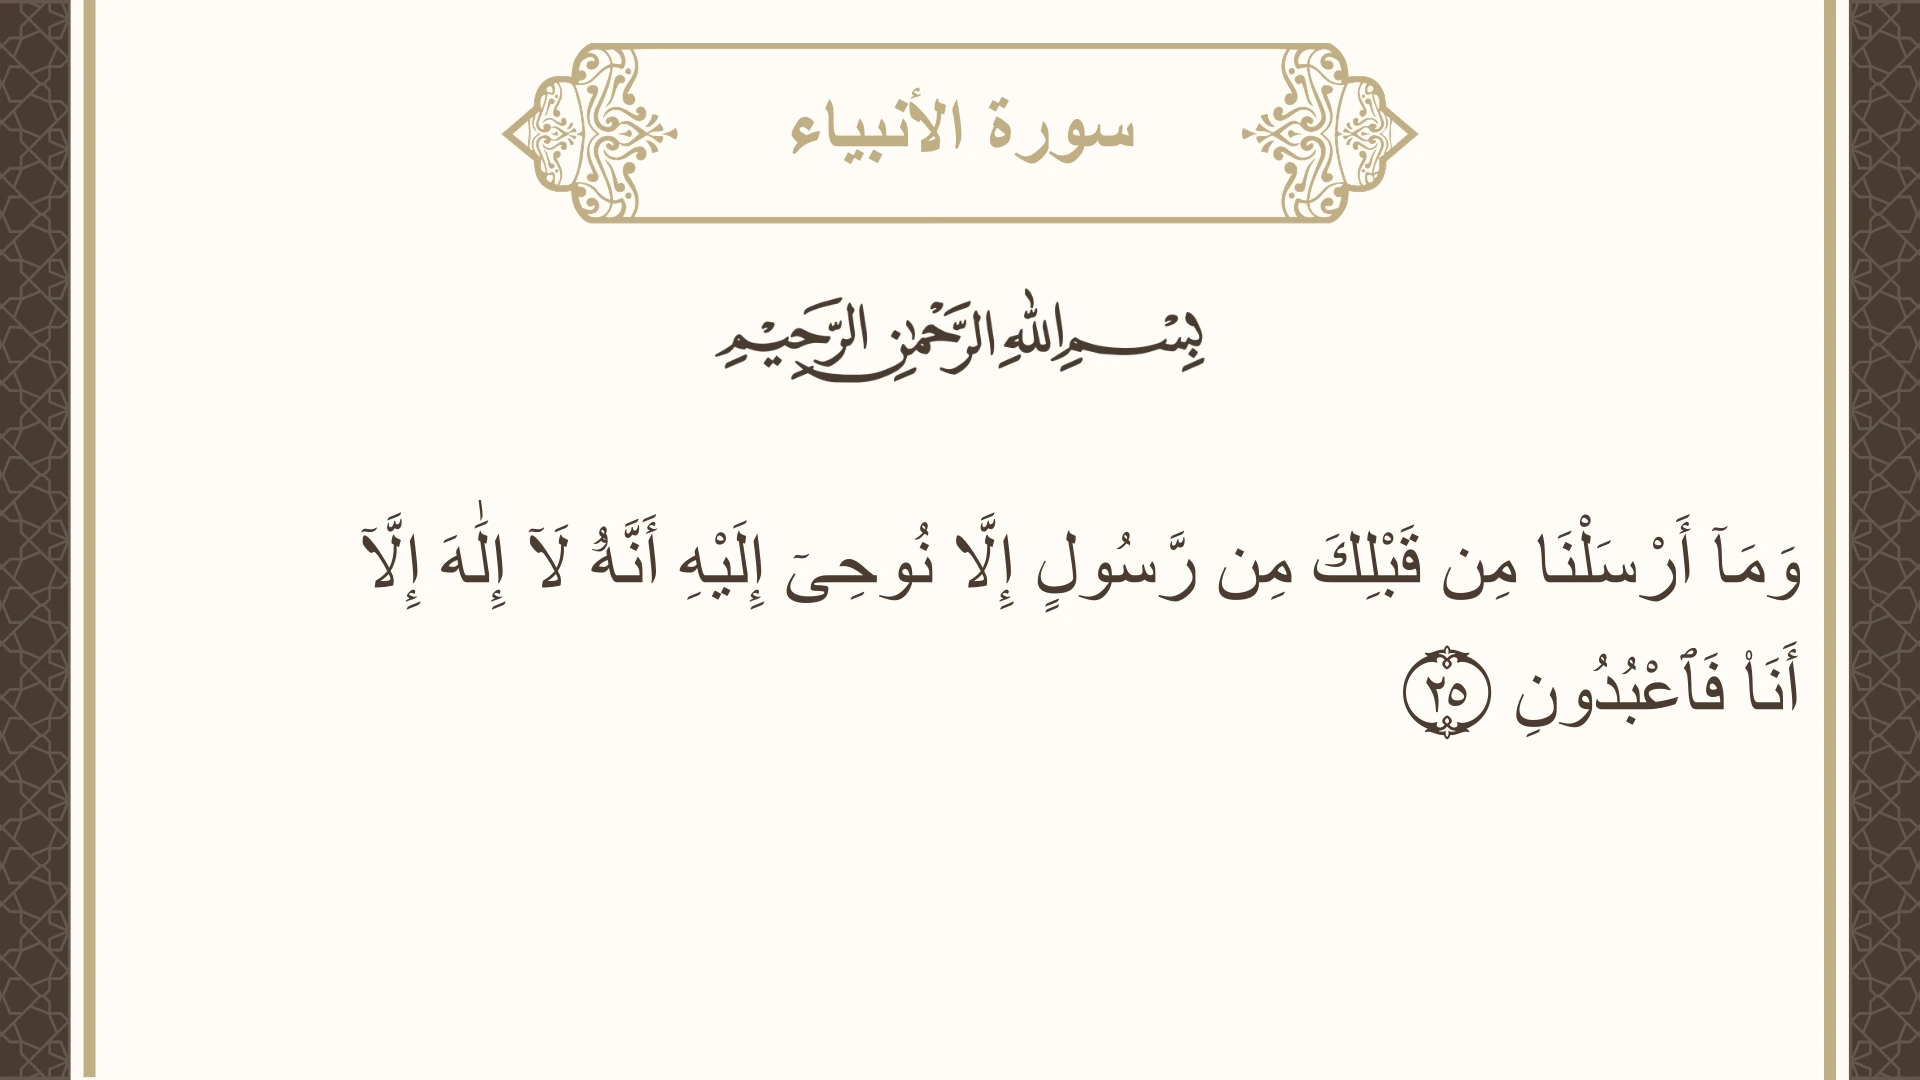 سورة الأنبياء
بِسْمِ اللهِ الرَّحْمٰنِ الرَّحِيْمِ
وَمَآ أَرْسَلْنَا مِن قَبْلِكَ مِن رَّسُولٍ إِلَّا نُوحِىٓ إِلَيْهِ أَنَّهُۥ لَآ إِلَٰهَ إِلَّآ
أَنَا۠ فَٱعْبُدُونِ ٢٥